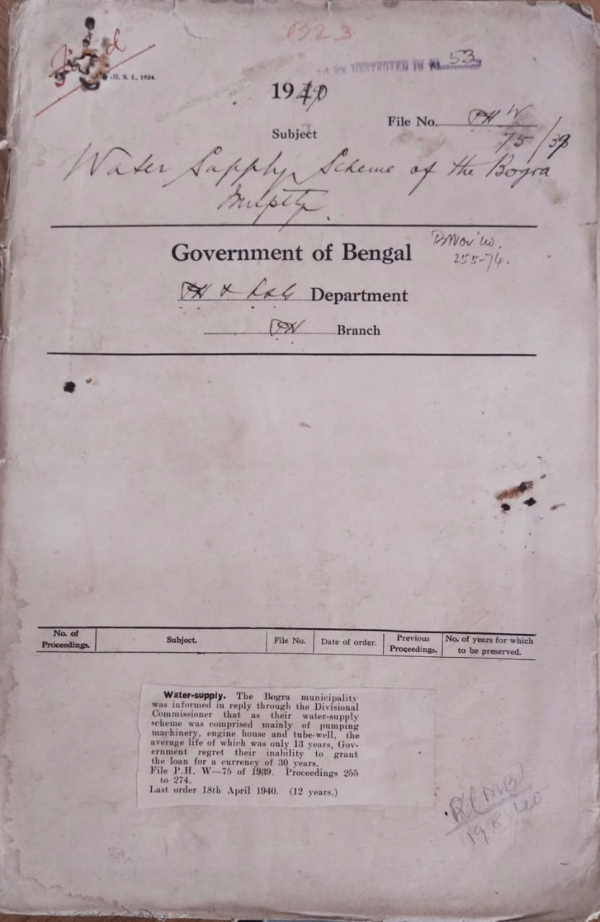 1923
TO BE DESTROYED IN 53
H. S. 1., 1924.
1940
File No. PH W
75/39
Subject
Water Supply Scheme of the Bogra
Mupty.
Government of Bengal
B Nov '40.
255-74.
PH & LSG Department
PH Branch
No. of Proceedings.
Subject.
File No.
Date of order.
Previous Proceedings.
No. of years for which to be preserved.
Water-supply. The Bogra municipality
was informed in reply through the Divisional
Commissioner that as their water-supply
scheme was comprised mainly of pumping
machinery, engine house and tube-well, the
average life of which was only 13 years, Gov-
ernment regret their inability to grant
the loan for a currency of 30 years.
File P.H. W—75 of 1939. Proceedings 255
to 274.
Last order 18th April 1940. (12 years.)